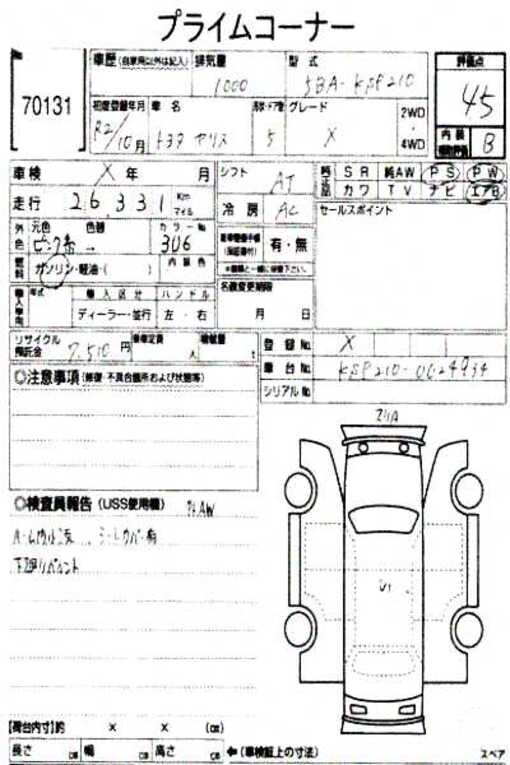 プライムコーナー
No.
70131
車歴 (自家用以外は記入)
排気量
1000
型式
5BA-KSP210
評価点
45
初度登録年月
R2/10月
車名
トヨタ ヤリス
5
グレード
X
2WD
・
4WD
内装
B
車検 X年 月
シフト
AT
純正品
SR 純AW PS PW
カワ TV ナビ エアB
走行 26,331 Km マイル
冷房 AC
セールスポイント
外色
元色 色替 カラーNo.
ピンク系 306
有・無
燃料
ガソリン・軽油・( )
内装色
名義変更期限
月 日
輸入車両
年式 輸入区分 ハンドル
ディーラー・並行 左・右
リサイクル預託金 7,510円
乗車定員 人
積載量 t
登録No. X
車台No.
シリアルNo.
◎注意事項 (修復・不具合箇所および状態等)
◎検査員報告 (USS使用欄)
U1
【荷台内寸】約 X X (cm)
長さ cm 幅 cm 高さ cm
←(車検証上の寸法)
スペア